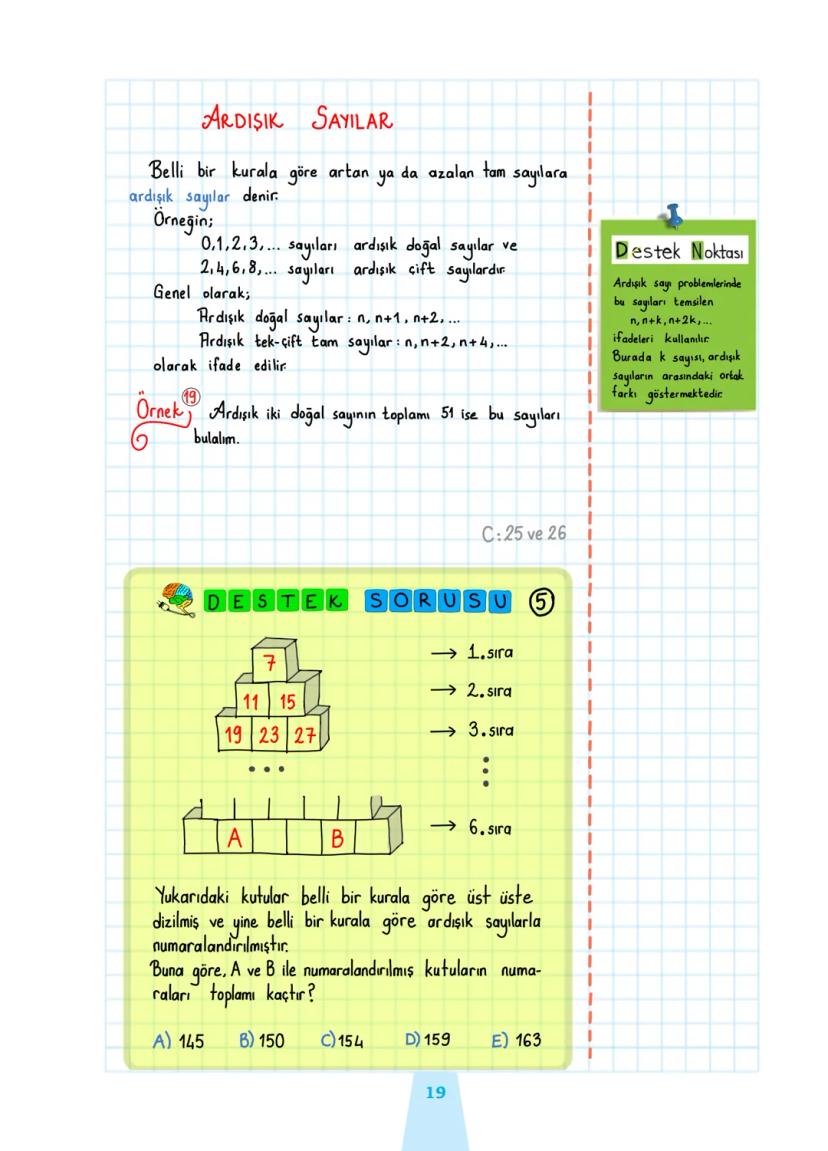 ARDIŞIK SAYILAR
Belli bir kurala göre artan ya da azalan tam sayılara
ardışık sayılar denir.
Örneğin;
0,1,2,3,... sayıları ardışık doğal sayılar ve
2,4,6,8,... sayıları ardışık çift sayılardır.
Genel olarak;
Ardışık doğal sayılar : n, n+1, n+2, ...
Ardışık tek-çift tam sayılar : n, n+2, n+4,...
olarak ifade edilir.
Örnek 19 Ardışık iki doğal sayının toplamı 51 ise bu sayıları
bulalım.
C: 25 ve 26
Destek Noktası
Ardışık sayı problemlerinde
bu sayıları temsilen
n, n+k, n+2k,...
ifadeleri kullanılır.
Burada k sayısı, ardışık
sayıların arasındaki ortak
farkı göstermektedir.
DESTEK SORUSU 5
7 → 1.sıra
11 15 → 2.sıra
19 23 27 → 3.sıra
A B → 6.sıra
Yukarıdaki kutular belli bir kurala göre üst üste
dizilmiş ve yine belli bir kurala göre ardışık sayılarla
numaralandırılmıştır.
Buna göre, A ve B ile numaralandırılmış kutuların numa-
raları toplamı kaçtır?
A) 145 B) 150 C) 154 D) 159 E) 163
19